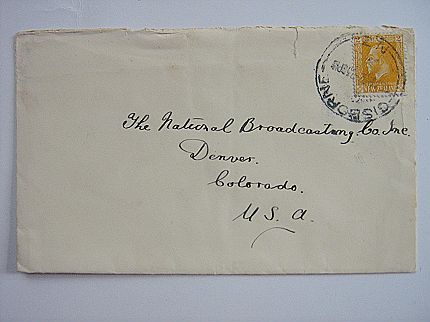 GISBORNE
The National Broadcasting Co. Inc.
Denver.
Colorado.
U.S.A.